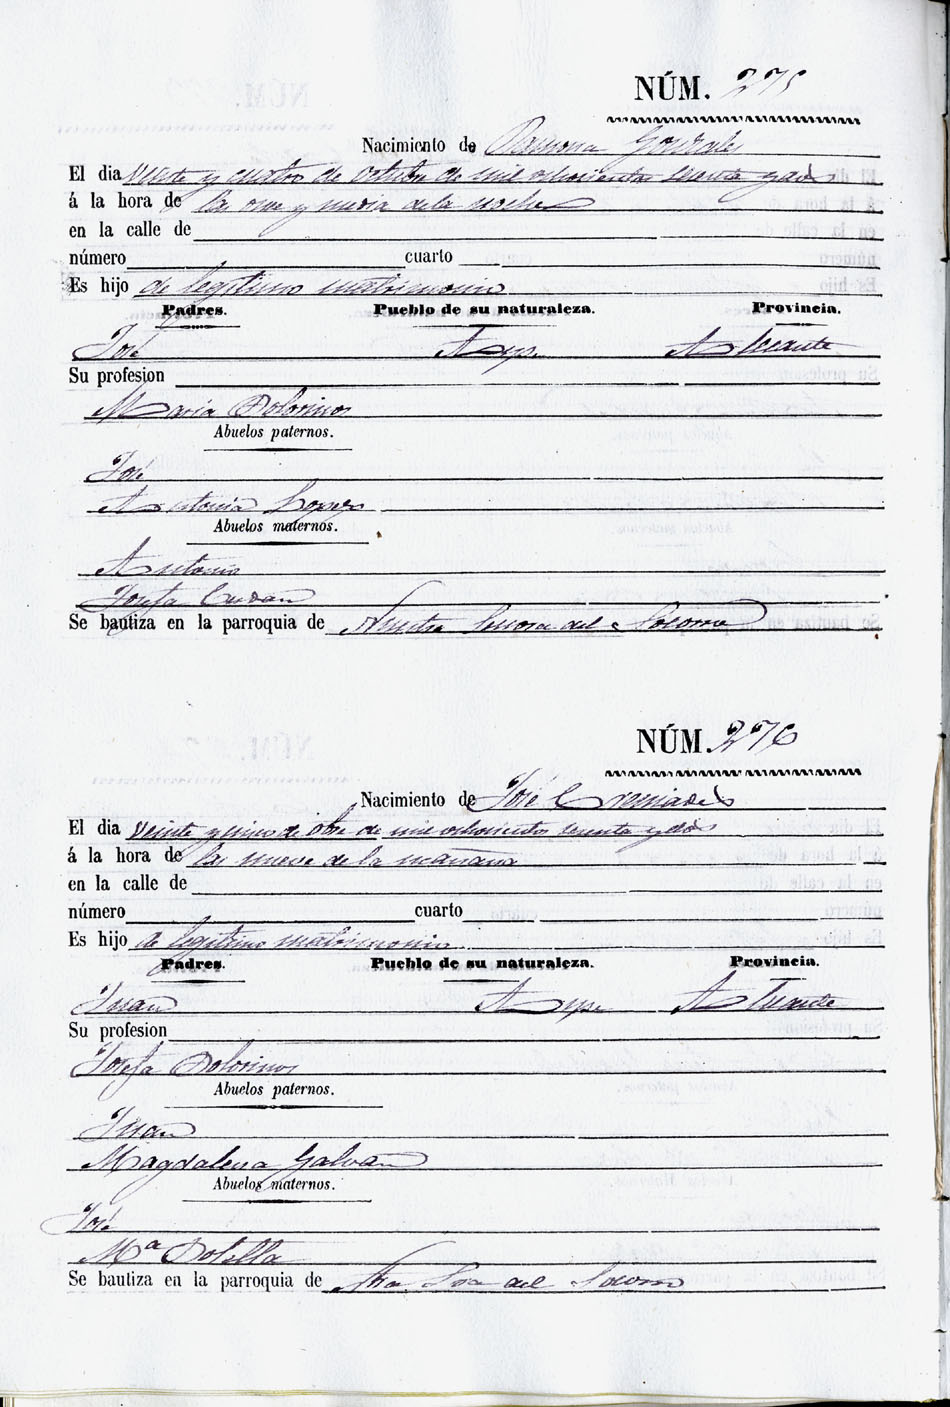 NÚM. 275
Nacimiento de Ramona Gonzales
El dia veinte y cuatro de Octubre de mil ochocientos sesenta y dos
á la hora de las once y media de la noche
en la calle de
número cuarto
Es hijo de legitimo matrimonio
Padres. Pueblo de su naturaleza. Provincia.
José Aspe Alicante
Su profesion
Maria Bolorinos
Abuelos paternos.
José
Antonia
Abuelos maternos.
Antonio
Josefa
Se bautiza en la parroquia de Nuestra Señora del Socorro
NÚM. 276
Nacimiento de José Cremades
El dia veinte y cinco de Obre de mil ochocientos sesenta y dos
á la hora de las nueve de la mañana
en la calle de
número cuarto
Es hijo de legitimo matrimonio
Padres. Pueblo de su naturaleza. Provincia.
Juan Aspe Alicante
Su profesion
Josefa Bolorinos
Abuelos paternos.
Juan
Magdalena Galvañ
Abuelos maternos.
José
Mª Botella
Se bautiza en la parroquia de Ntra Sra del Socorro